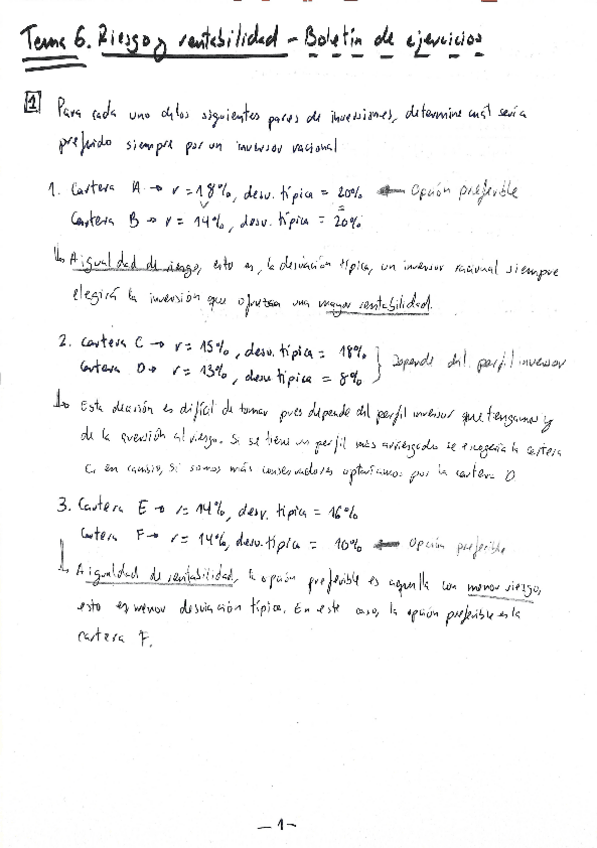 Tema 6. Riesgo y rentabilidad - Boletín de ejercicios
1 Para cada uno de los siguientes pares de inversiones, determine cuál sería
preferido siempre por un inversor racional
1. Cartera A → r = 18%, desv. típica = 20% ← Opción preferible
Cartera B → r = 14%, desv. típica = 20%
↳ A igualdad de riesgo, esto es, la desviación típica, un inversor racional siempre
elegirá la inversión que ofrezca una mayor rentabilidad.
2. Cartera C → r = 15%, desv. típica = 18%
Cartera D → r = 13%, desv. típica = 8% } Depende del perfil inversor
↳ Esta decisión es difícil de tomar pues depende del perfil inversor que tengamos y
de la aversión al riesgo. Si se tiene un perfil más arriesgado se escogería la cartera
C, en cambio, si somos más conservadores optaríamos por la cartera D
3. Cartera E → r = 14%, desv. típica = 16%
Cartera F → r = 14%, desv. típica = 10% ← Opción preferible
↳ A igualdad de rentabilidad, la opción preferible es aquella con menor riesgo,
esto es, menor desviación típica. En este caso, la opción preferible es la
cartera F.
- 1 -